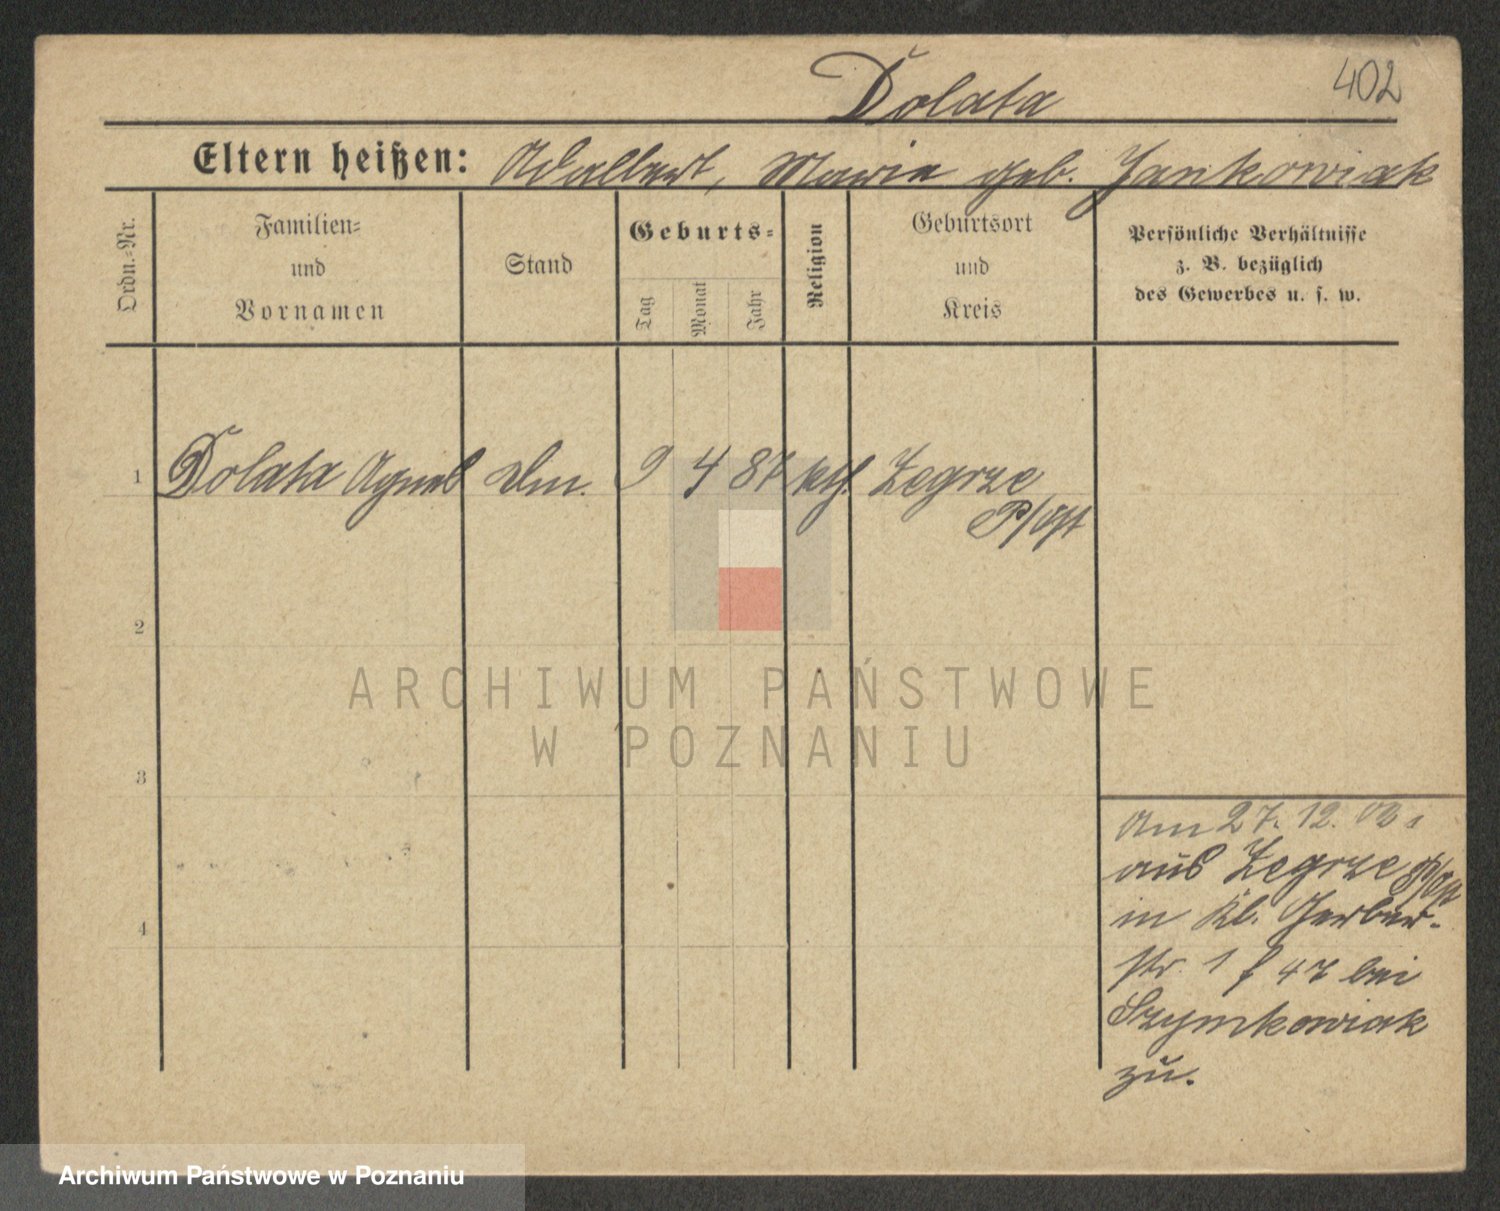 Dolata
402
Eltern heißen: Adalbert, Marie geb. Jankowiak
Ordn.-Nr.
Familien-
und
Vornamen
Stand
Geburts-
Tag
Monat
Jahr
Religion
Geburtsort
und
Kreis
Persönliche Verhältnisse
z. B. bezüglich
des Gewerbes u. s. w.
1 Dolata Agnes Dm. 9 4 87 kth. Zegrze
P/Ost
2
3
4
Am 27. 12. 03
aus Zegrze P/Ost
in Kl. Gerber-
str. 1 f 47 bei
Szymkowiak
zu.
ARCHIWUM PAŃSTWOWE
W POZNANIU
Archiwum Państwowe w Poznaniu